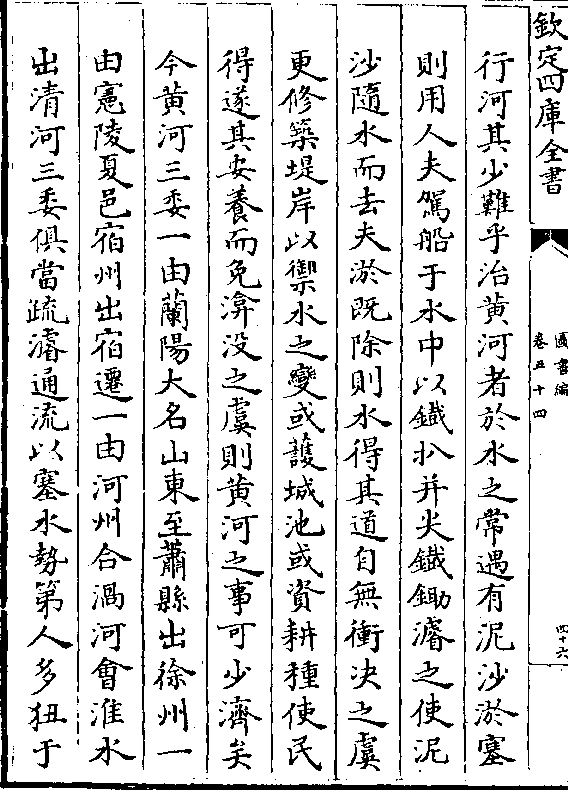 欽定四庫全書
圖書編
卷五十四
四十六
行河其少難乎治黄河者於水之常遇有泥沙淤塞
則用人夫駕船于水中以鐵扒并尖鐵鋤濬之使泥
沙隨水而去夫淤既除則水得其道自無衝决之虞
更修築堤岸以禦水之變或護城池或資耕種使民
得遂其安養而免渰没之虞則黄河之事可少濟矣
今黄河三委一由蘭陽大名山東至蕭縣出徐州一
由寗陵夏邑宿州出宿遷一由河州合渦河會淮水
出清河三委俱當疏濬通流以塞水勢第人多狃于